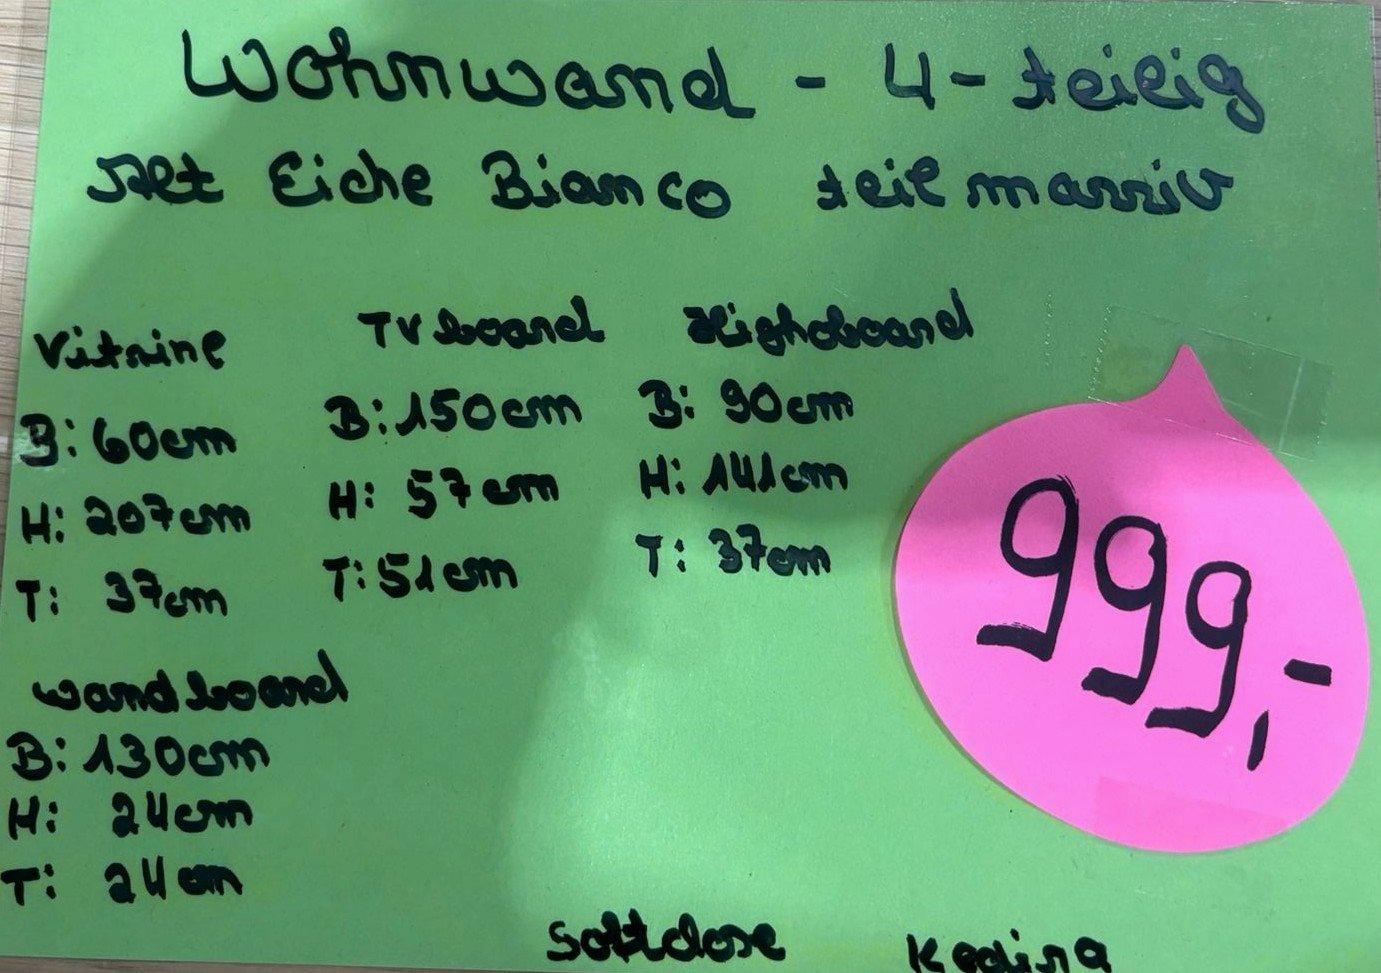 Wohnwand - 4-teilig
Alt Eiche Bianco teilmassiv
Vitrine
B: 60cm
H: 207cm
T: 37cm
TVboard
B: 150cm
H: 57cm
T: 51cm
Highboard
B: 90cm
H: 141cm
T: 37cm
999,-
wandboard
B: 130cm
H: 24cm
T: 24cm
Softclose